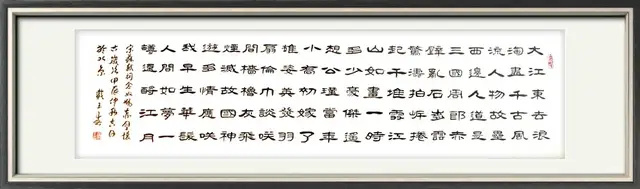 大江東去浪
淘盡千古風
流人物故壘
西邊人道是
三國周郎赤
壁亂石崩雲
驚濤拍岸捲
起千堆雪江
山如畫一時
多少豪傑遙
想公瑾當年
小喬初嫁了
雄姿英發羽
扇綸巾談笑
間檣櫓灰飛
煙滅故國神
遊多情應笑
我早生華髮
人間如夢一
尊還酹江月
宋蘇軾詞念奴嬌赤壁懷
古歲次甲辰仲秋吉日
於北京